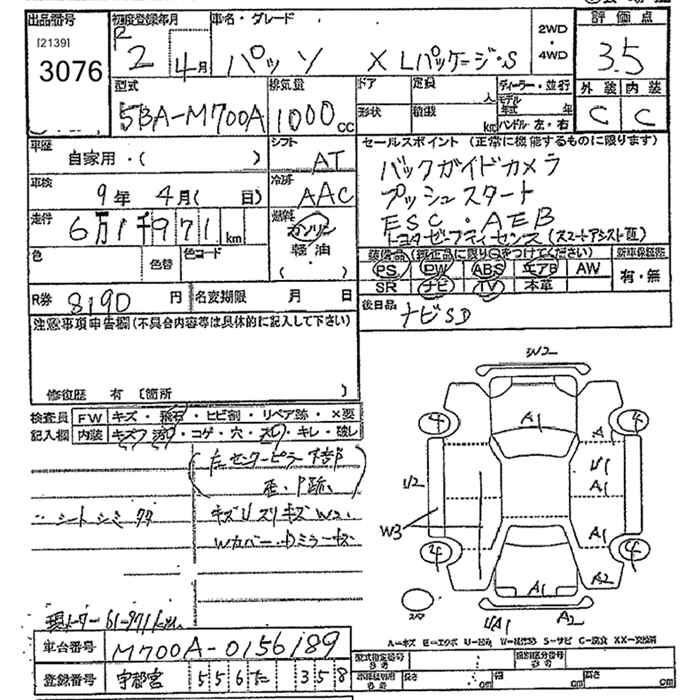 出品番号 初度登録年月 車名・グレード 評価点
[2139] R 2WD
3076 2 4月 パッソ X Lパッケージ・S ・4WD 3.5
型式 排気量 ドア 定員 ディーラー・並行 外装 内装
5BA-M700A 1000cc 人 モデル年式 年 C C
形状 積載 kg ハンドル 左・右
車歴 シフト セールスポイント (正常に機能するものに限ります)
自家用・( ) AT バックガイドカメラ
車検 冷房 プッシュスタート
9年 4月( 日) AAC ESC・AEB
走行 燃料
6万1千971km ガソリン トヨタセーフティセンス(スマートアシスト
色 色替 色コード 軽・油 装備品(純正品に限り○をつけてください) 新車保証書
( ) PS PW ABS エアB AW 有・無
R券 8190円 名変期限 月 日 SR ナビ TV 本革
注意事項申告欄(不具合内容等は具体的に記入して下さい) 後日品
ナビSD
修復歴 有 〔箇所 〕
検査員 FW キズ・飛石・ヒビ割・リペア跡・×要
記入欄 内装 キズ・汚れ・コゲ・穴・スレ・キレ・破レ
左センターピラー下部
歪、P跡、
シートシミ キズU スリキズW2、
Wカバー・ドミラーキズ
現メーター61-971km
W2
4 A1 4
A
U1
U2 A1
W3
A1
4 4
A2
A1
UA1 A2
A-キズ E-エクボ U-凹み W-補修跡 S-サビ C-腐食 XX-交換済
車台番号 M700A-0156189 型式指定番号 類別区分番号
登録番号 宇都宮 556 358 長さ cm 幅 cm 高さ cm